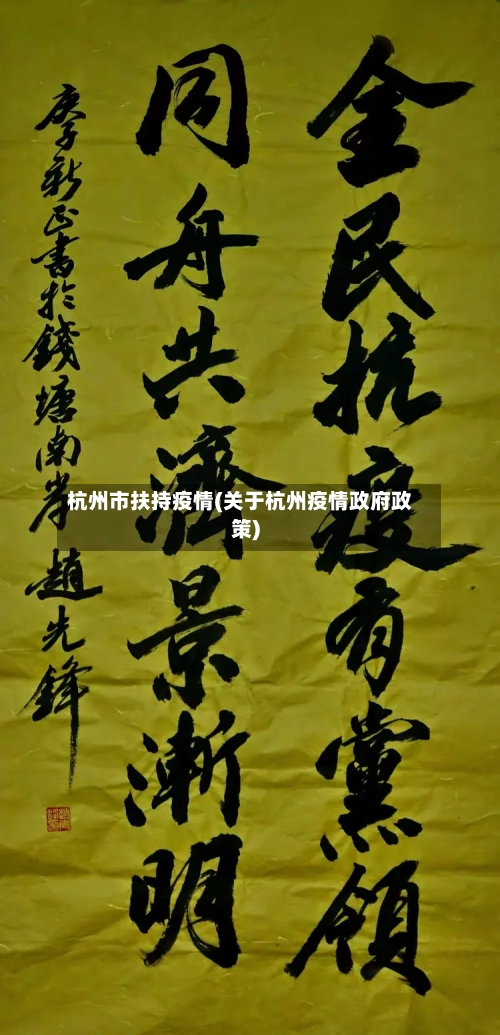 全民抗疫有黨領
同舟共濟景漸明
庚子新正書於錢塘南岸 趙先鋒
杭州市扶持疫情(关于杭州疫情政府政
策)